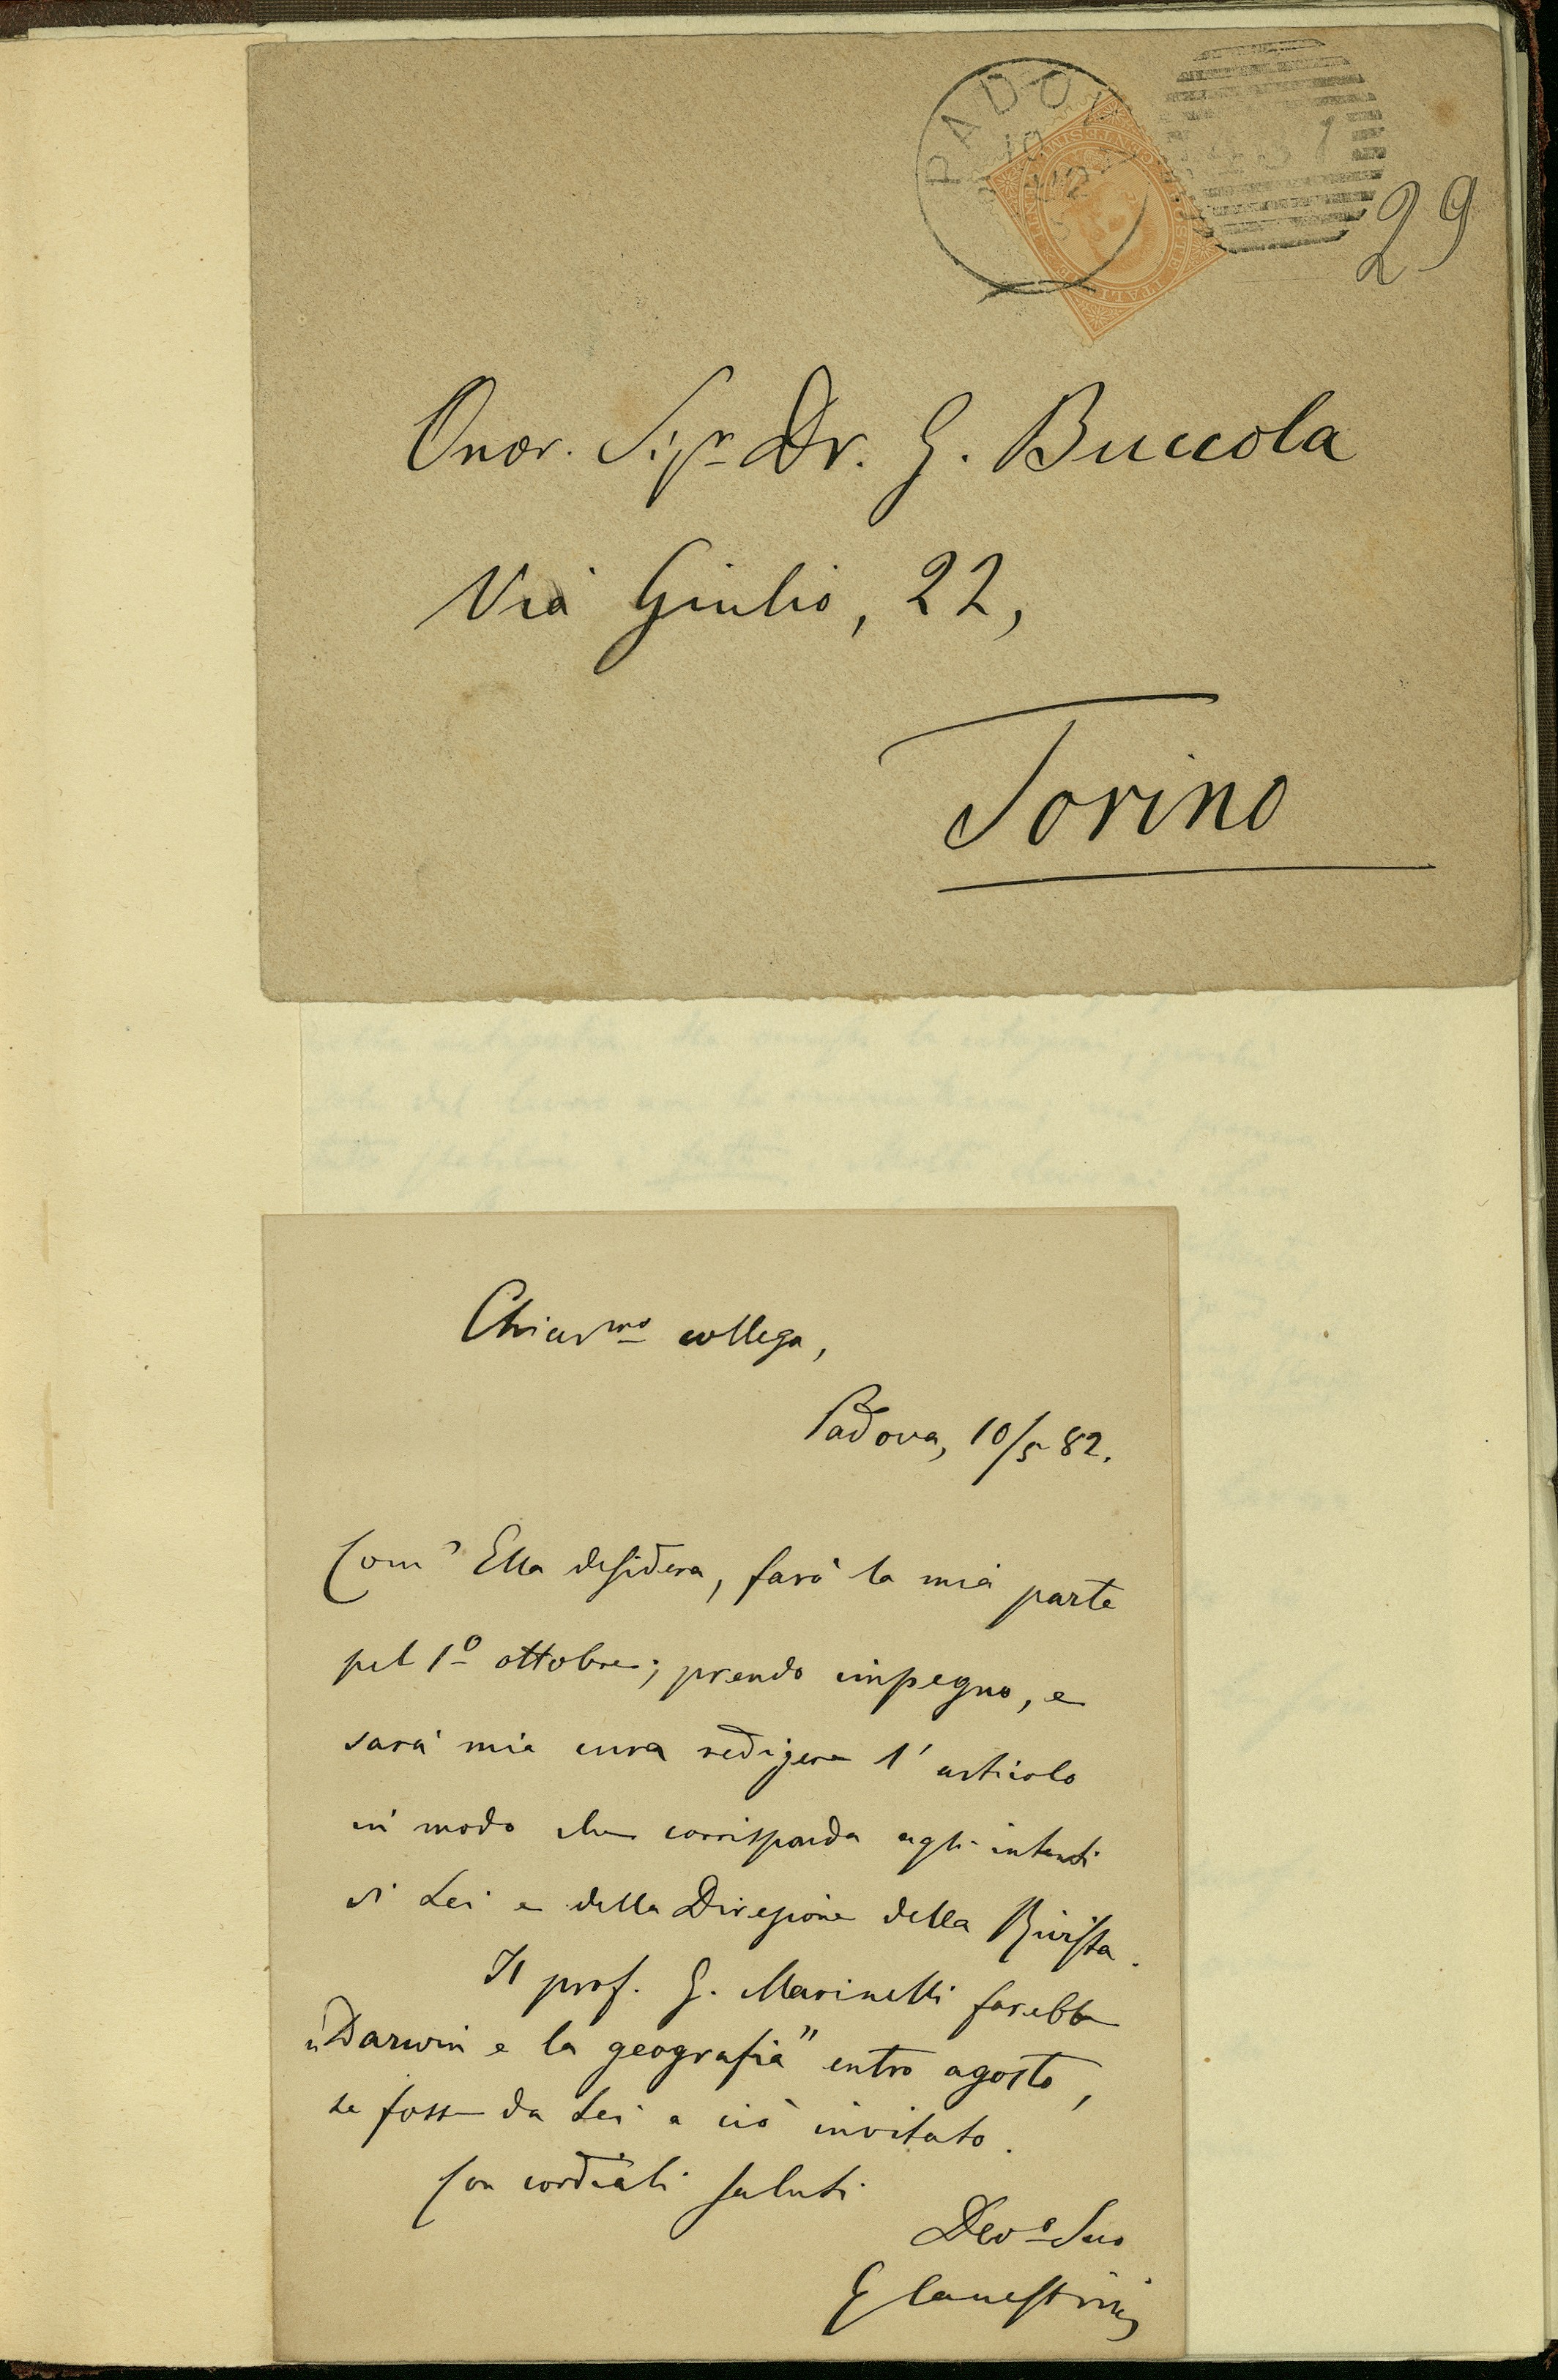 PADOVA
10
29
Onor. Sigr Dr. G. Buccola
Via Giulio, 22,
Torino
Chiarmo collega,
Padova, 10/5 82.
Com' Ella desidera, farò la mia parte
pel 1º ottobre; prendo impegno, e
sarà mia cura redigere l'articolo
in modo che corrisponda agli intenti
di Lei e della Direzione della Rivista.
Il prof. G. Marinelli farebbe
"Darwin e la geografia" entro agosto,
se fosse da Lei a ciò invitato.
Con cordiali saluti
Devo Suo
G Canestrini